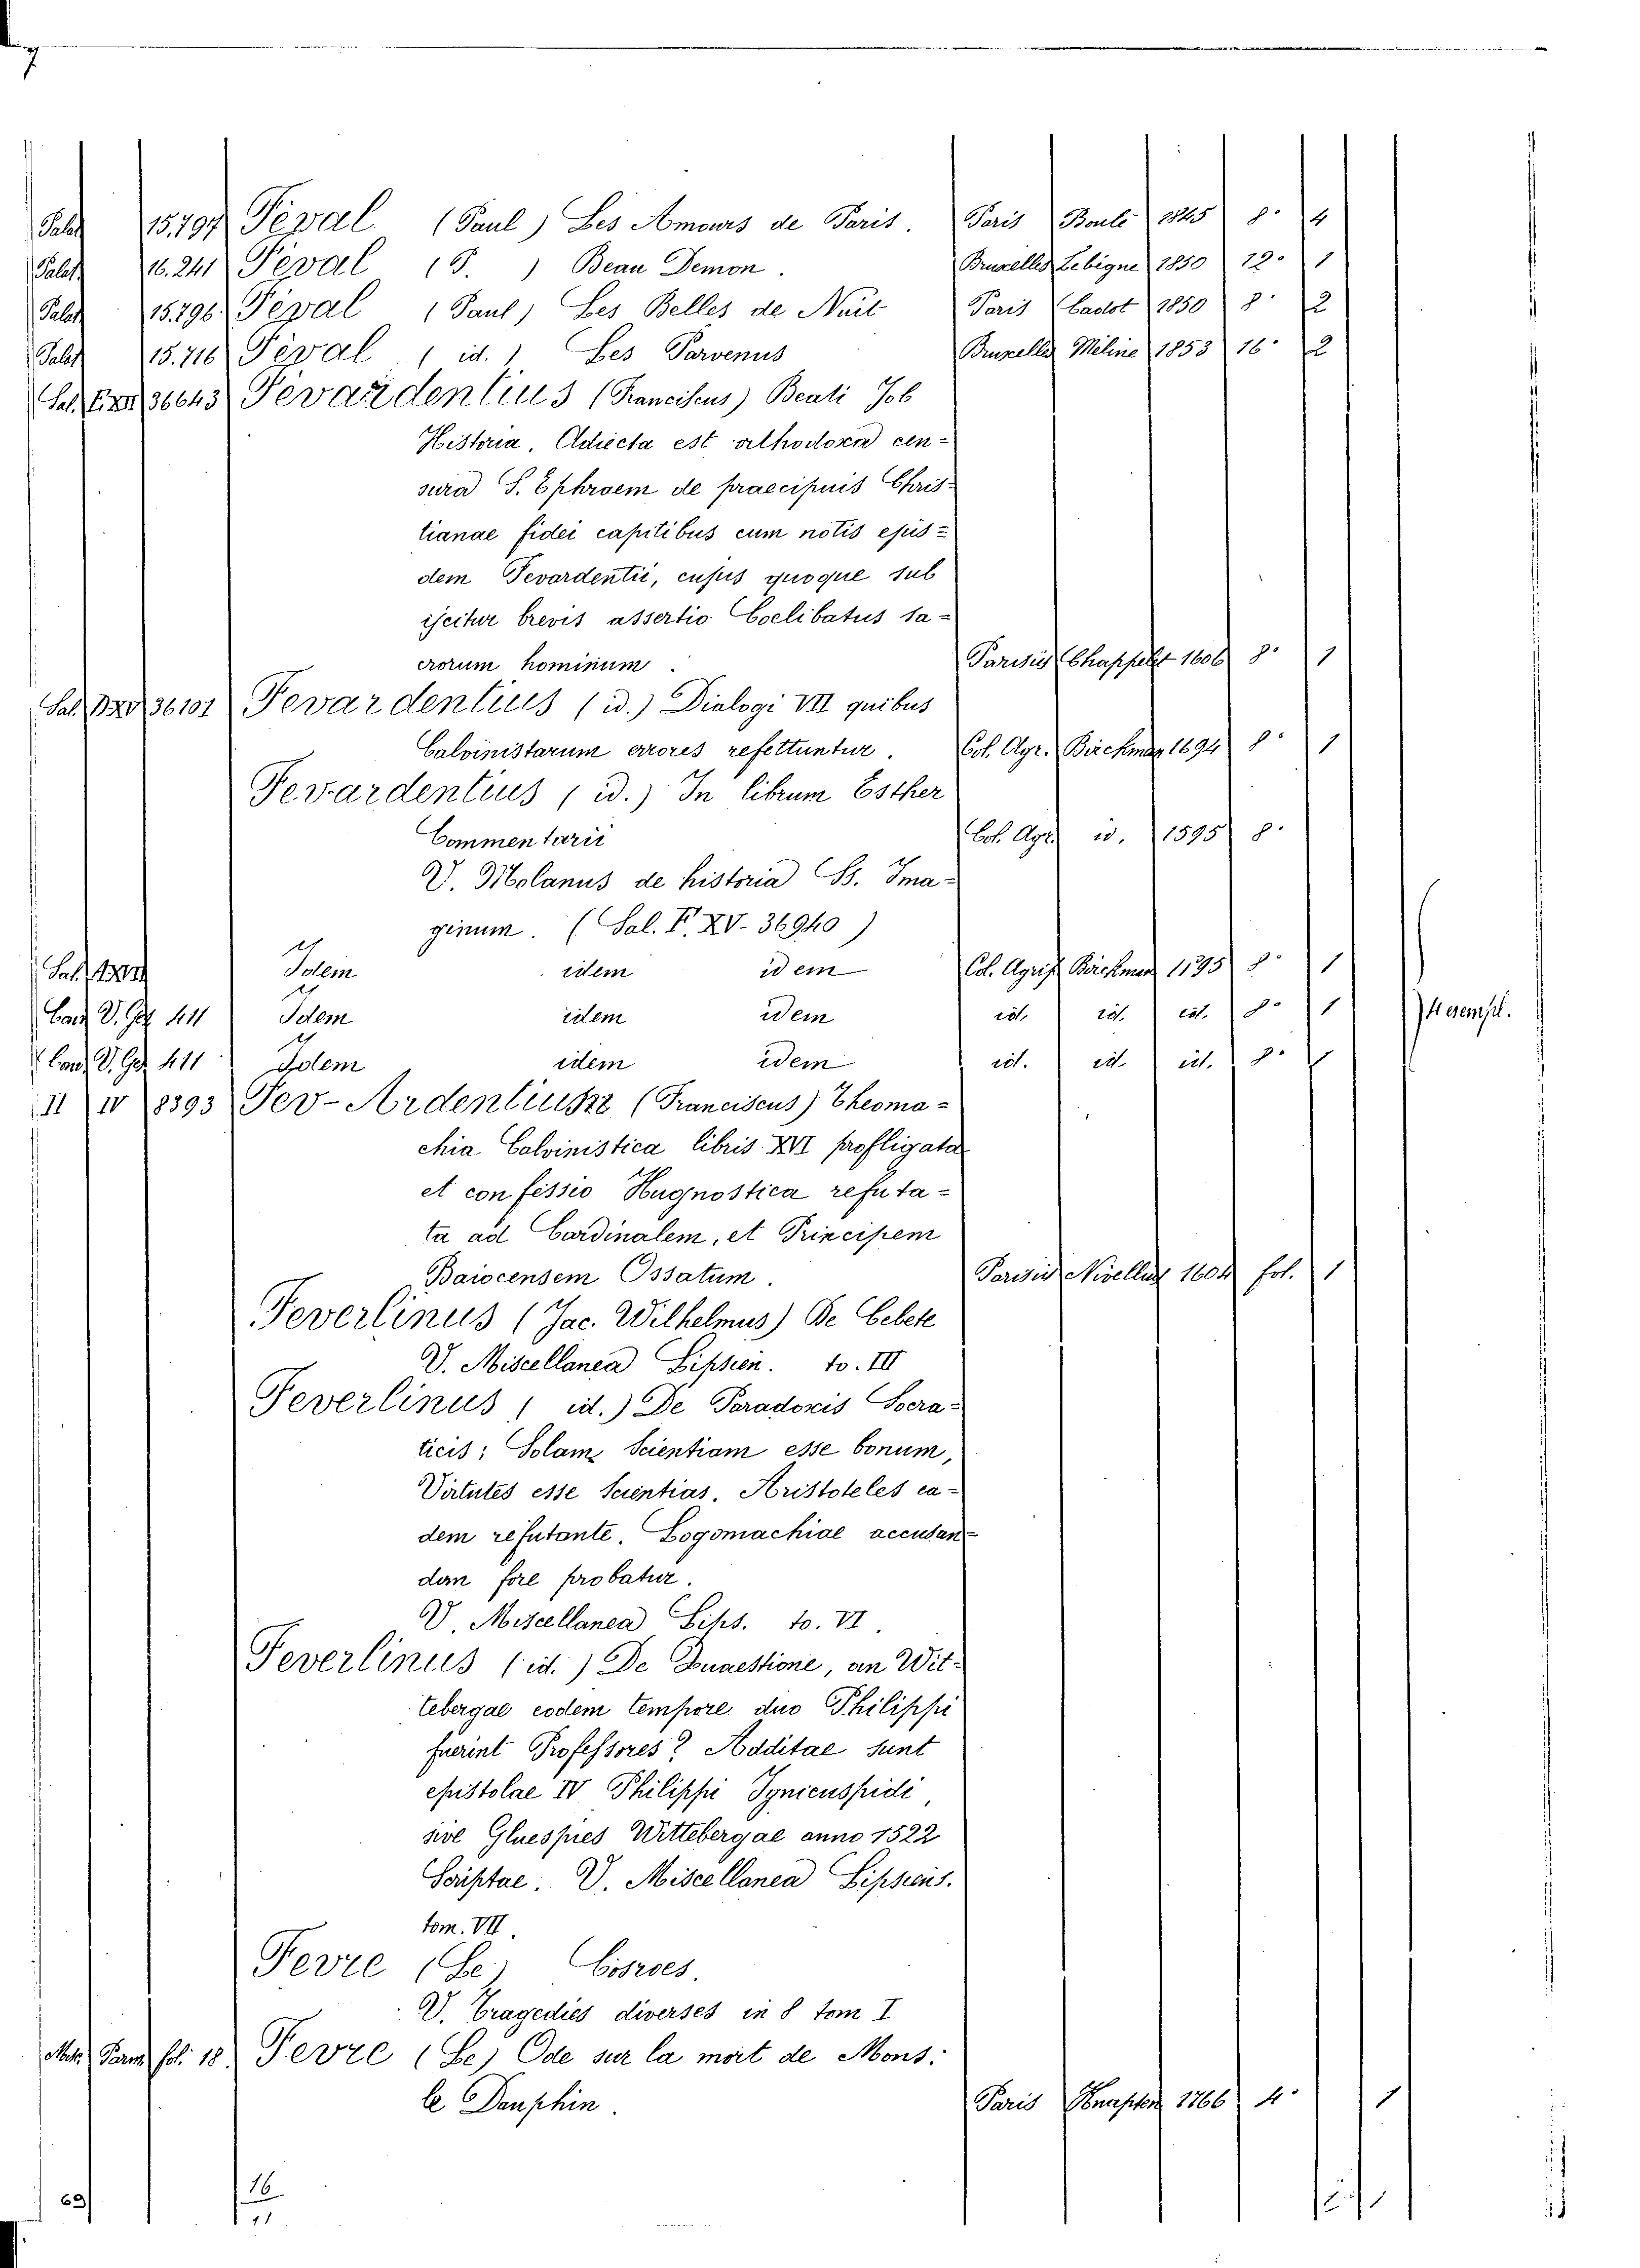 Palat 15,797 Féval (Paul) Les Amours de Paris. Paris Boulé 1845 8° 4
Palat 16.241 Féval (P. ) Beau Demon. Bruxelles Lebègne 1850 12° 1
Palat 15.796 Féval (Paul) Les Belles de Nuit Paris Cadot 1850 8° 2
Palat 15.716 Féval (id.) Les Parvenus Bruxelles Méline 1853 16° 2
36643 Fevardentius (Franciscus) Beati Job
Historia, Adiecta est orthodoxa cen=
sura S. Ephroem de praecipuis Chris=
tianae fidei capitibus cum notis ejus=
dem Fevardentii, cujus quoque sub
ijcitur brevis assertio Coelibatus sa=
crorum hominum. Parisiis Chappelet 1606 8° 1
36101 Fevardentius (id.) Dialogi VII quibus
Calvinistarum errores refettuntur. Col. Agr. Birckman 1694 8° 1
Fevardentius (id.) In librum Esther
Commentarii Col. Agr. id. 1595 8°
V. Molanus de historia SS. Ima=
ginum. (Sal. F. XV. 36940)
Idem idem idem Col. Agrip. Birckman 8° 1
V. 411 Idem idem idem id. id. id. 8° 1
V. 411 Idem idem idem id. id. id. 8° 1
II IV 8393 Fev-Ardentius (Franciscus) Theoma=
chia Calvinistica libris XVI profligata
et confessio Hugnostica refuta=
ta ad Cardinalem, et Principem
Baiocensem Ossatum. Parisiis Nivellius 1604 fol. 1
Feverlinus (Jac. Wilhelmus) De Cebete
V. Miscellanea Lipsien. to. III
Feverlinus (id.) De Paradoxis Socra=
ticis; Solam Scientiam esse bonum,
Virtutes esse Scientias. Aristoteles ea=
dem refutante. Logomachiae accusan=
dam fore probatur.
V. Miscellanea Lips. to. VI.
Feverlinus (id.) De Quaestione, an Wit=
tebergae eodem tempore duo Philippi
fuerint Professores? Additae sunt
epistolae IV Philippi Ignicuspidi,
sive Gluespies Wittebergae anno 1522
Scriptae. V. Miscellanea Lipsiens.
tom. VII.
Fevre (Le) Cosroes.
V. Tragedies diverses in 8 tom I
Fevre (Le) Ode sur la mort de Mons:
le Dauphin. Paris 1766 4° 1
16
11
69